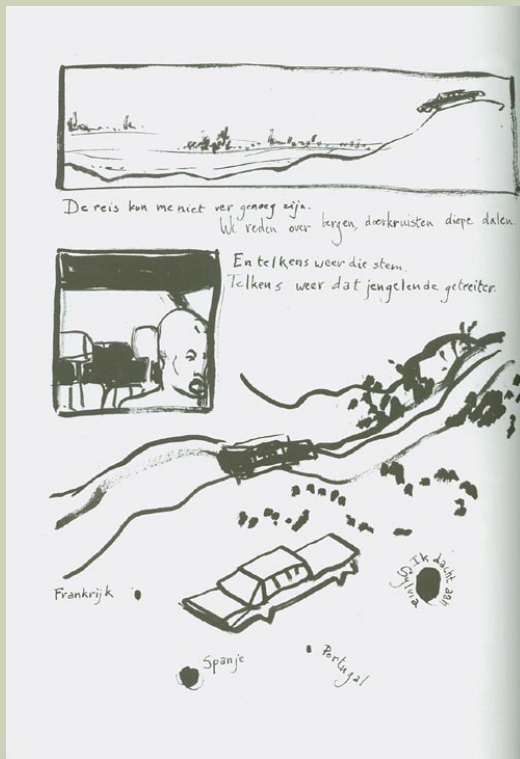 De reis kon me niet ver genoeg zijn.
We reden over bergen, doorkruisten diepe dalen.
En telkens weer die stem.
Telkens weer dat jengelende getreiter.
Frankrijk
Ik dacht aan
Sylvie
Spanje
Portugal